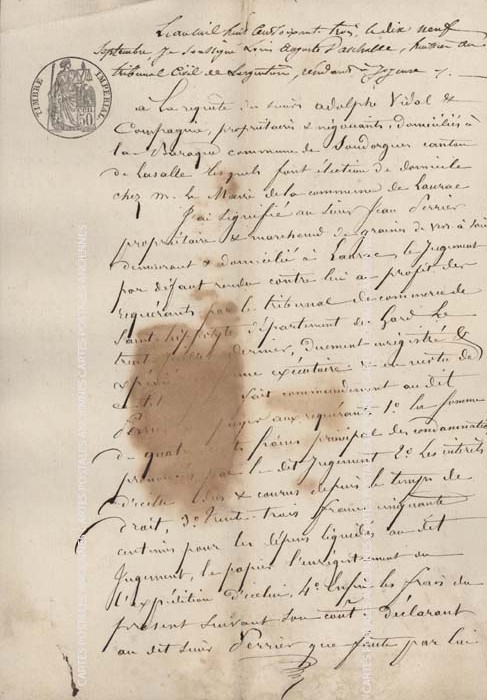 L'an mil huit cent soixante trois, le dix neuf
Septembre, Je soussigné Louis Auguste Paschalle, huissier au
tribunal civil de Largentière, résidant à Joyeuse
TIMBRE IMPERIAL
50
à la requête du sieur Adolphe Vidal &
Compagnie, propriétaires & négociants, domiciliés à
la Baraque commune de canton
de Lasalle lesquels font élection de domicile
chez M. le Maire de la commune de Laurac
J'ai signifié au sieur Jean Perrier
propriétaire & marchand de grains de vers à soie
demeurant & domicilié à Laurac, le Jugement
par défaut rendu contre lui au profit des
requérants par le tribunal de commerce de
Saint-hippolyte département du Gard le
trente dernier, duement enregistré &
exécutoire & en vertu de
fait commandement au dit
Perrier payer aux requérants 1o. la somme
de quatre francs principal des condamnations
prononcées par le dit Jugement 2o. Les intérêts
d'icelle dus & courus depuis le temps de
droit, 3o. trente trois francs cinquante
centimes pour les dépens liquidés au dit
Jugement, le papier l'enregistrement ou
l'expédition d'icelui, 4o. Enfin les frais du
présent suivant son coût. Déclarant
au dit sieur Perrier que faute par lui
CARTES POSTALES ANCIENNES